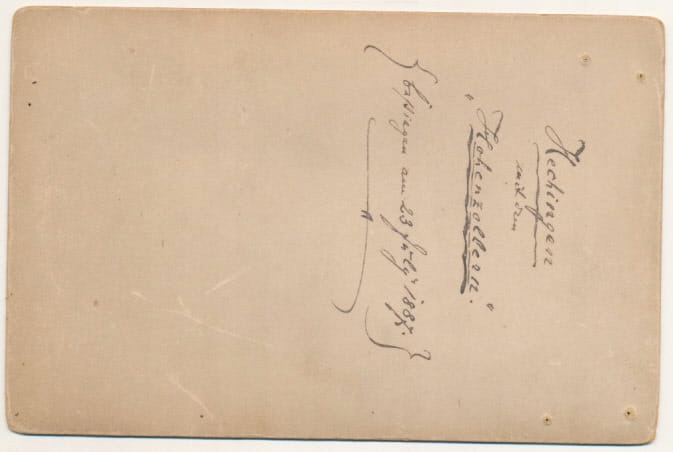 Hechingen
mit dem
"Hohenzollern".
{ bestiegen am 23 July 1887. }